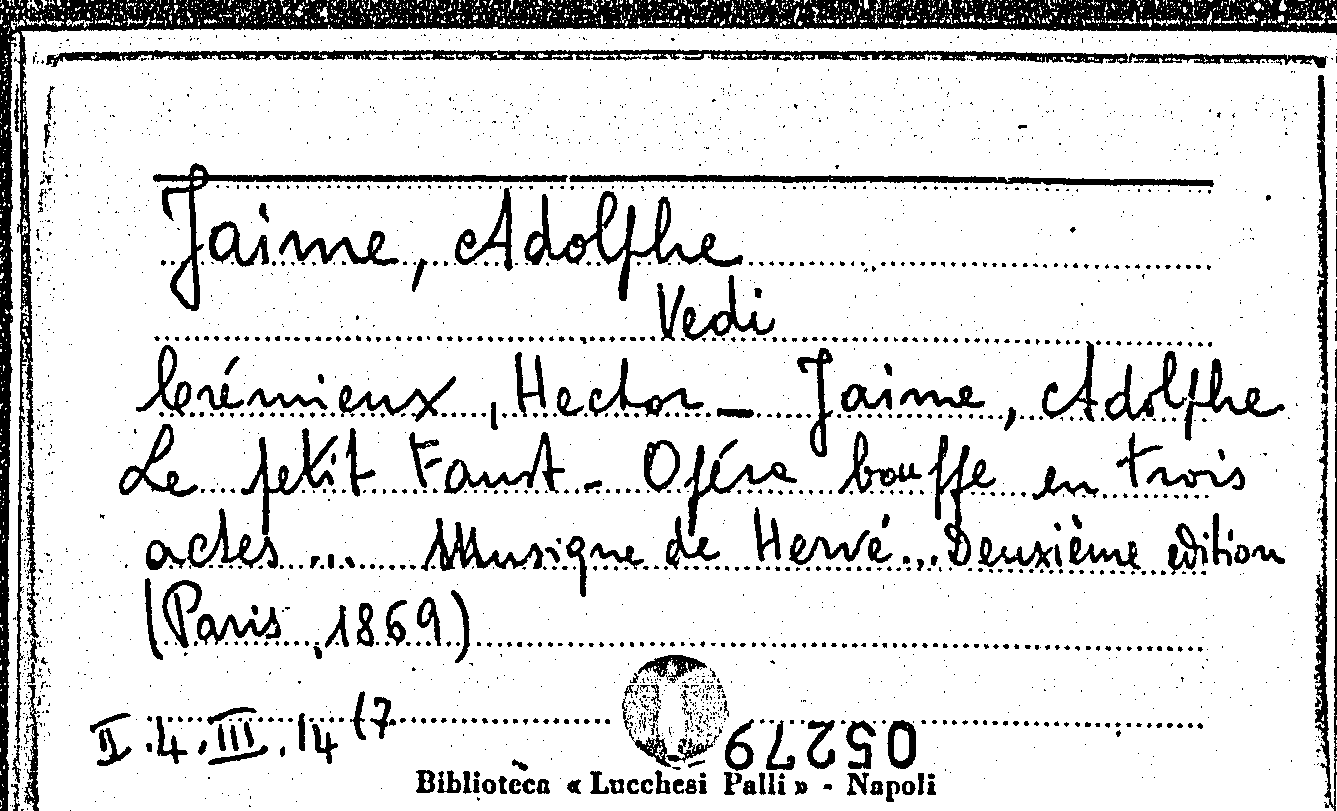 Jaime, Adolphe
Vedi
Crémieux, Hector – Jaime, Adolphe
Le petit Faust – Opéra bouffe en trois
actes ... Musique de Hervé... Deuxième edition
(Paris, 1869)
II.4.III.14 (7
05279
Biblioteca « Lucchesi Palli » - Napoli